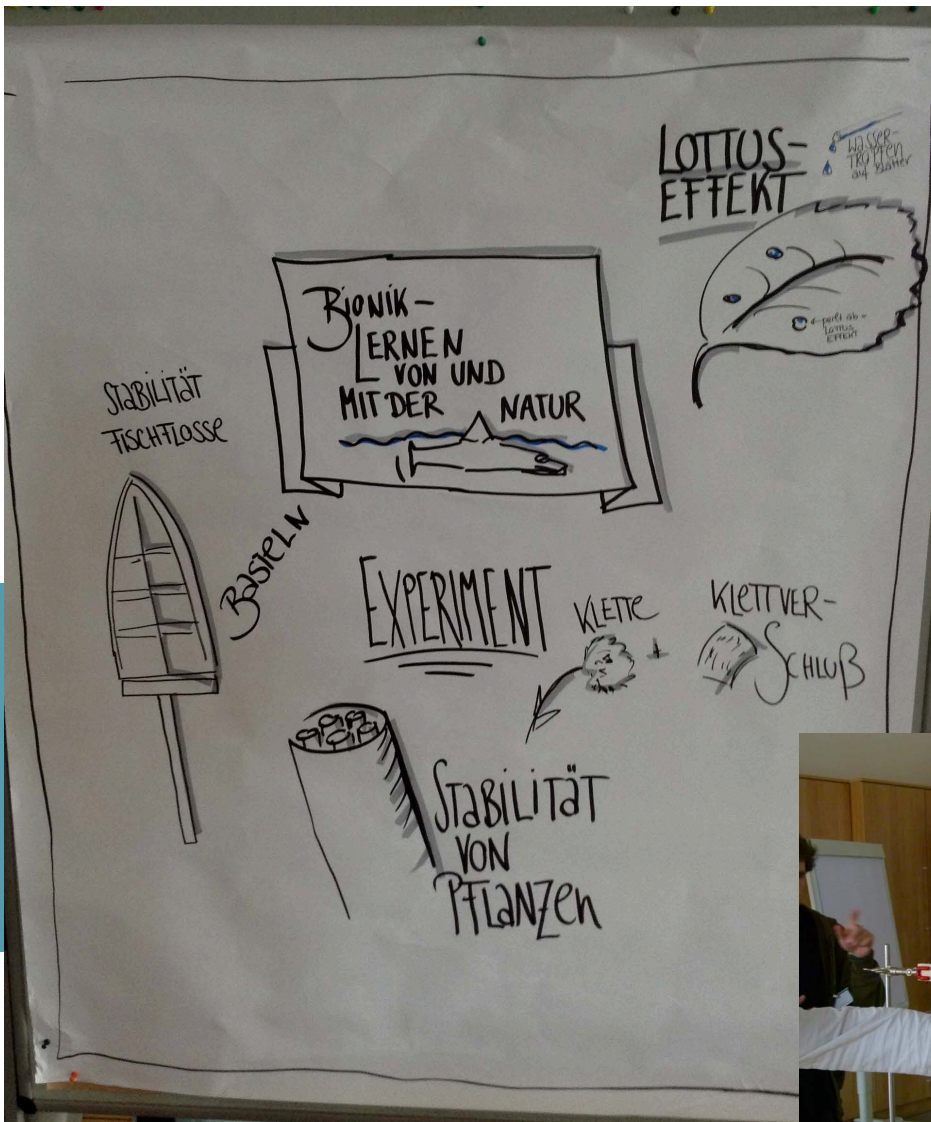 LOTTUS-
EFFEKT
WASSER-
TROPFEN
auf Blätter
perlt ab =
LOTTUS
EFFEKT
BIONIK-
LERNEN
VON UND
MIT DER NATUR
STABILITÄT
FISCHFLOSSE
BASTELN
EXPERIMENT
KLETTE
KLETTVER-
SCHLUß
STABILITÄT
VON
PFLANZEN